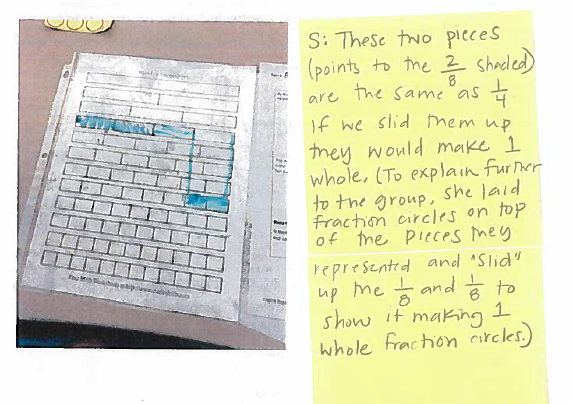 S: These two pieces
(points to the 2/8 shaded)
are the same as 1/4
If we slid them up
they would make 1
whole. (To explain further
to the group, she laid
fraction circles on top
of the pieces they
represented and "slid"
up the 1/8 and 1/8 to
show it making 1
whole fraction circles.)